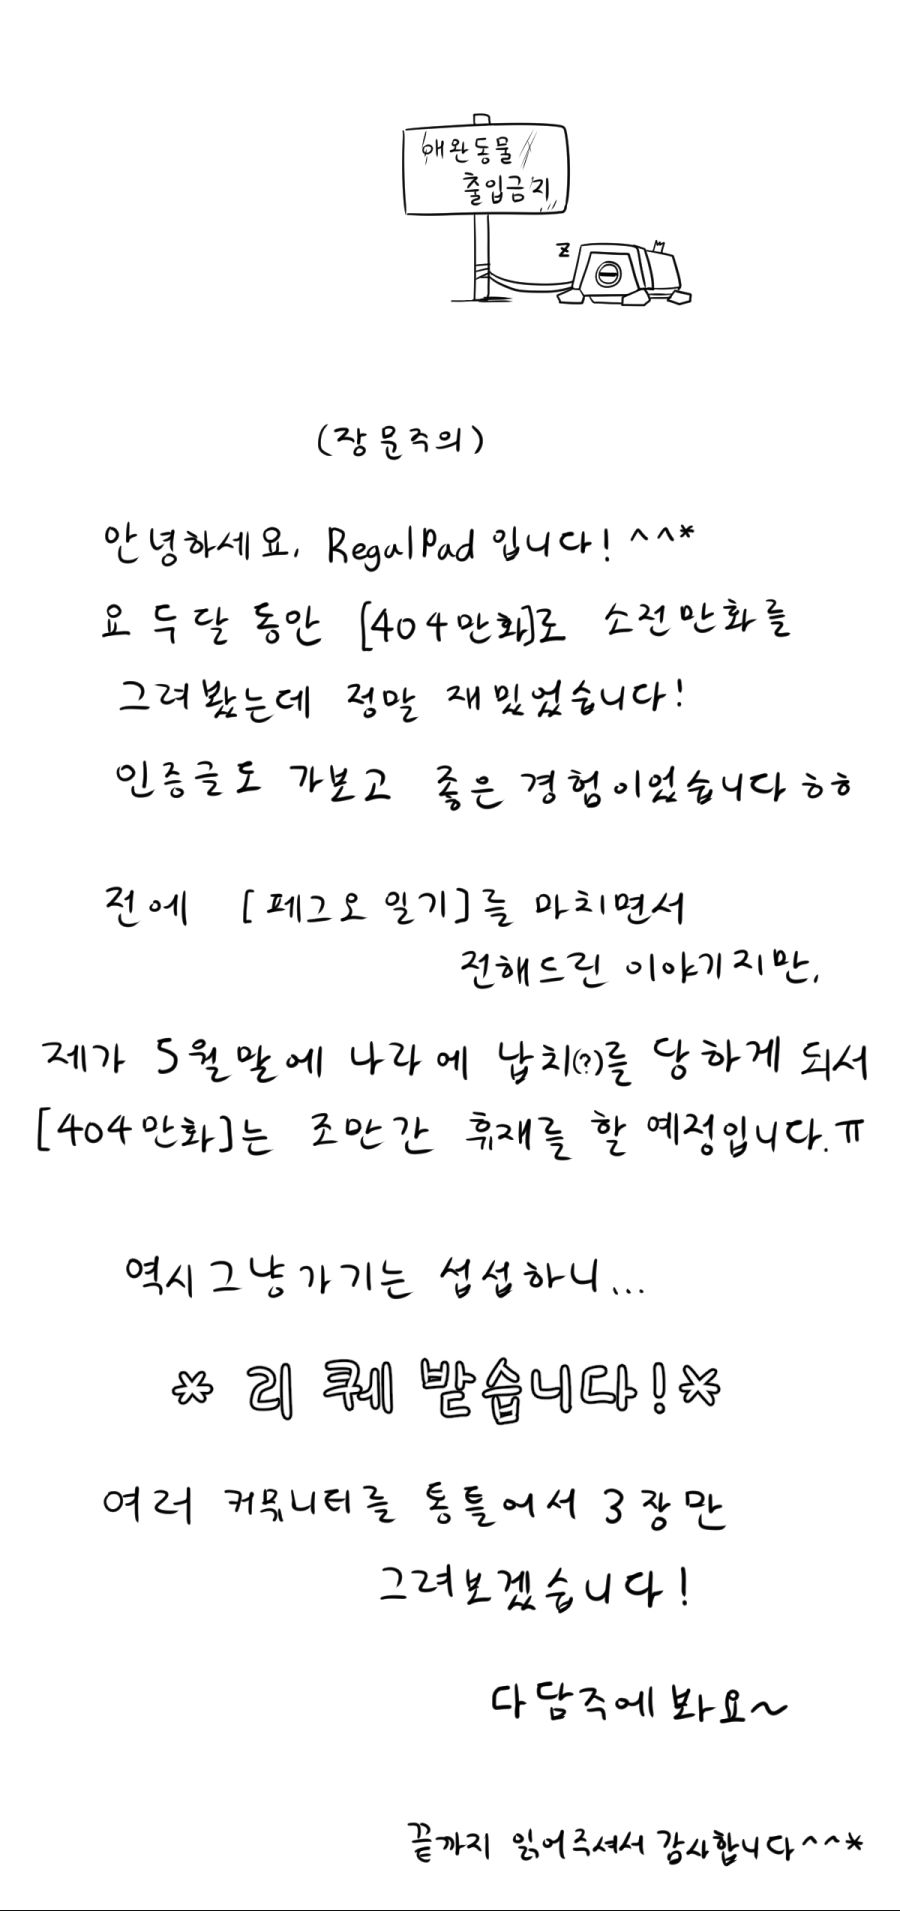 애완동물
출입금지
z
(장문주의)
안녕하세요. RegulPad 입니다! ^^*
요 두달 동안 [404만화]로 소전만화를
그려봤는데 정말 재밌었습니다!
인증글도 가보고 좋은 경험이었습니다 ㅎㅎ
전에 [페그오 일기]를 마치면서
전해드린 이야기지만,
제가 5월말에 나라에 납치(?)를 당하게 되서
[404만화]는 조만간 휴재를 할 예정입니다.ㅠ
역시 그냥 가기는 섭섭하니...
* 리퀘 받습니다! *
여러 커뮤니티를 통틀어서 3장만
그려보겠습니다!
다담주에 봐요~
끝까지 읽어주셔서 감사합니다^^*